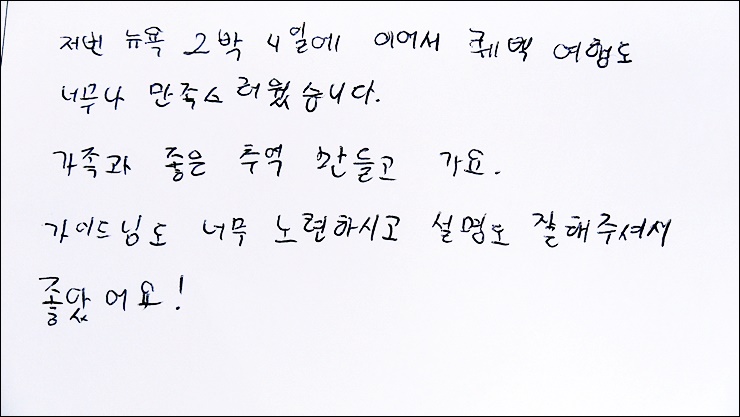 저번 뉴욕 2박 4일에 이어서 퀘벡 여행도
너무나 만족스러웠습니다.
가족과 좋은 추억 만들고 가요.
가이드님도 너무 노련하시고 설명도 잘해주셔서
좋았어요!